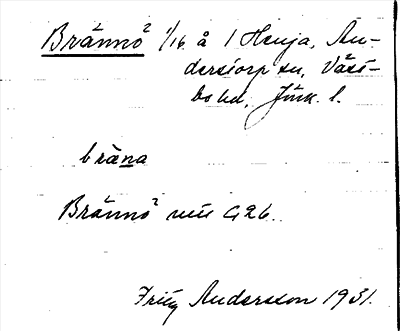 Brännö² 1/16 å 1 Heuja, An-
derstorp sn, Väst-
bo hd, Jönk. l.
bräna
Brännö² G26.
Fritz Andersson 1931.